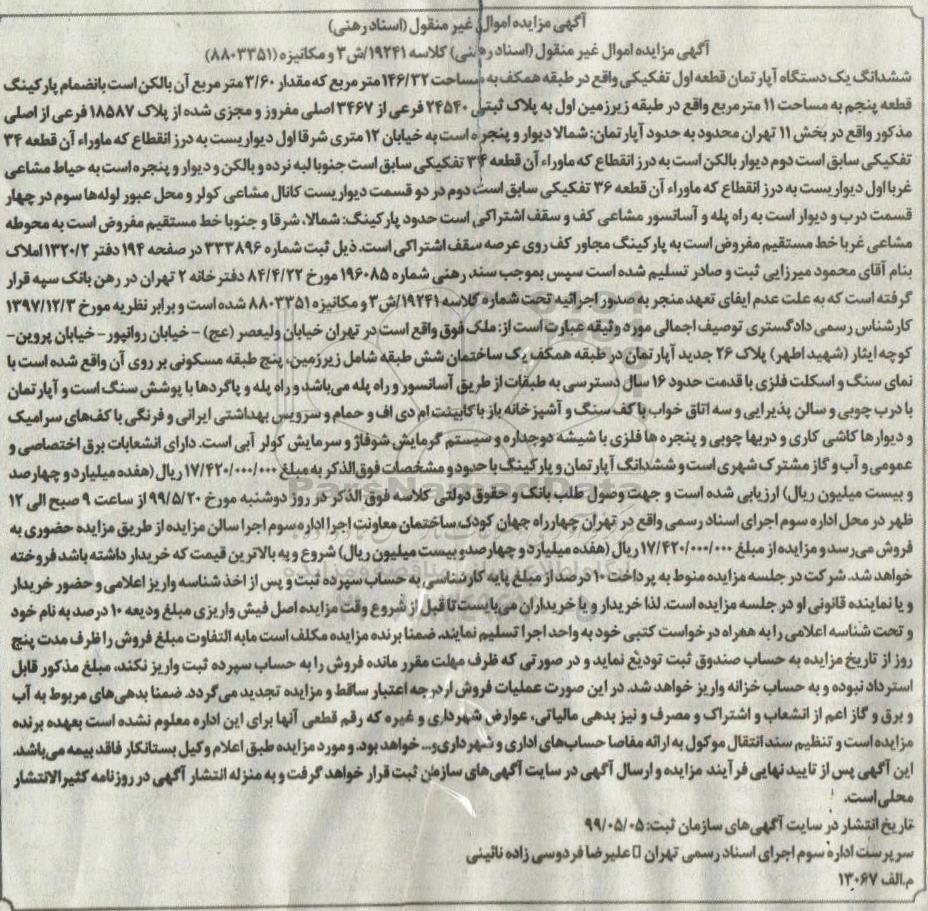 آگهی مزایده اموال غیر منقول (اسناد رهنی)
آگهی مزایده اموال غیر منقول (اسناد رهنی) کلاسه ۱۹۲۴۱/ش۳ و مکانیزه (۸۸۰۳۳۵۱)
ششدانگ یک دستگاه آپارتمان قطعه اول تفکیکی واقع در طبقه همکف به مساحت ۱۴۶/۳۲ متر مربع که مقدار ۳/۶۰ متر مربع آن بالکن است بانضمام پارکینگ
قطعه پنجم به مساحت ۱۱ مترمربع واقع در طبقه زیرزمین اول به پلاک ثبتی ۲۴۵۴۰ فرعی از ۳۴۶۷ اصلی مفروز و مجزی شده از پلاک ۱۸۵۸۷ فرعی از اصلی
مذکور واقع در بخش ۱۱ تهران محدود به حدود آپارتمان: شمالا دیوار و پنجره است به خیابان ۱۲ متری شرقا اول دیواریست به درز انقطاع که ماوراء آن قطعه ۳۴
تفکیکی سابق است دوم دیوار بالکن است به درز انقطاع که ماوراء آن قطعه ۳۴ تفکیکی سابق است جنوبا لبه نرده و بالکن و دیوار و پنجره است به حیاط مشاعی
غربا اول دیواریست به درز انقطاع که ماوراء آن قطعه ۳۶ تفکیکی سابق است دوم در دو قسمت دیواریست کانال مشاعی کولر و محل عبور لوله‌ها سوم در چهار
قسمت درب و دیوار است به راه پله و آسانسور مشاعی کف و سقف اشتراکی است حدود پارکینگ: شمالا، شرقا و جنوبا خط مستقیم مفروض است به محوطه
مشاعی غربا خط مستقیم مفروض است به پارکینگ مجاور کف روی عرصه سقف اشتراکی است. ذیل ثبت شماره ۳۳۳۸۹۶ در صفحه ۱۹۴ دفتر ۱۳۲۰/۲ املاک
بنام آقای محمود میرزایی ثبت و صادر تسلیم شده است سپس بموجب سند رهنی شماره ۱۹۶۰۸۵ مورخ ۸۴/۴/۲۲ دفترخانه ۲ تهران در رهن بانک سپه قرار
گرفته است که به علت عدم ایفای تعهد منجر به صدور اجرائیه تحت شماره کلاسه ۱۹۲۴۱/ش۳ و مکانیزه ۸۸۰۳۳۵۱ شده است و برابر نظریه مورخ ۱۳۹۷/۱۲/۳
کارشناس رسمی دادگستری توصیف اجمالی مورد وثیقه عبارت است از: ملک فوق واقع است در تهران خیابان ولیعصر (عج) – خیابان روانپور – خیابان پروین–
کوچه ایثار (شهید اطهر) پلاک ۲۶ جدید آپارتمان در طبقه همکف یک ساختمان شش طبقه شامل زیرزمین، پنج طبقه مسکونی بر روی آن واقع شده است با
نمای سنگ و اسکلت فلزی با قدمت حدود ۱۶ سال دسترسی به طبقات از طریق آسانسور و راه پله می‌باشد و راه پله و پاگردها با پوشش سنگ است و آپارتمان
با درب چوبی و سالن پذیرایی و سه اتاق خواب با کف سنگ و آشپزخانه باز با کابینت ام دی اف و حمام و سرویس بهداشتی ایرانی و فرنگی با کف‌های سرامیک
و دیوارها کاشی کاری و دربها چوبی و پنجره ها فلزی با شیشه دوجداره و سیستم گرمایش شوفاژ و سرمایش کولر آبی است. دارای انشعابات برق اختصاصی و
عمومی و آب و گاز مشترک شهری است و ششدانگ آپارتمان و پارکینگ با حدود و مشخصات فوق‌الذکر به مبلغ ۱۷/۴۲۰/۰۰۰/۰۰۰ ریال (هفده میلیارد و چهارصد
و بیست میلیون ریال) ارزیابی شده است و جهت وصول طلب بانک و حقوق دولتی کلاسه فوق الذکر در روز دوشنبه مورخ ۹۹/۵/۲۰ از ساعت ۹ صبح الی ۱۲
ظهر در محل اداره سوم اجرای اسناد رسمی واقع در تهران چهارراه جهان کودک ساختمان معاونت اجرا اداره سوم اجرا سالن مزایده از طریق مزایده حضوری به
فروش می‌رسد و مزایده از مبلغ ۱۷/۴۲۰/۰۰۰/۰۰۰ ریال (هفده میلیارد و چهارصدو بیست میلیون ریال) شروع و به بالاترین قیمت که خریدار داشته باشد فروخته
خواهد شد. شرکت در جلسه مزایده منوط به پرداخت ۱۰ درصد از مبلغ پایه کارشناسی به حساب سپرده ثبت و پس از اخذ شناسه واریز اعلامی و حضور خریدار
و یا نماینده قانونی او در جلسه مزایده است. لذا خریدار و یا خریداران می‌بایست تا قبل از شروع وقت مزایده اصل فیش واریزی مبلغ ودیعه ۱۰ درصد به نام خود
و تحت شناسه اعلامی را به همراه درخواست کتبی خود به واحد اجرا تسلیم نمایند. ضمنا برنده مزایده مکلف است مابه التفاوت مبلغ فروش را ظرف مدت پنج
روز از تاریخ مزایده به حساب صندوق ثبت تودیع نماید و در صورتی که ظرف مهلت مقرر مانده فروش را به حساب سپرده ثبت واریز نکند، مبلغ مذکور قابل
استرداد نبوده و به حساب خزانه واریز خواهد شد. در این صورت عملیات فروش از درجه اعتبار ساقط و مزایده تجدید می‌گردد. ضمنا بدهی‌های مربوط به آب
و برق و گاز اعم از انشعاب و اشتراک و مصرف و نیز بدهی مالیاتی، عوارض شهرداری و غیره که رقم قطعی آنها برای این اداره معلوم نشده است بعهده برنده
مزایده است و تنظیم سند انتقال موکول به ارائه مفاصا حساب‌های اداری و شهرداری و... خواهد بود. و مورد مزایده طبق اعلام وکیل بستانکار فاقد بیمه می‌باشد.
این آگهی پس از تایید نهایی فرآیند مزایده و ارسال آگهی در سایت آگهی‌های سازمان ثبت قرار خواهد گرفت و به منزله انتشار آگهی در روزنامه کثیرالانتشار
محلی است.
تاریخ انتشار در سایت آگهی‌های سازمان ثبت: ۹۹/۰۵/۰۵
سرپرست اداره سوم اجرای اسناد رسمی تهران علیرضا فردوسی زاده نائینی
م.الف ۱۳۰۶۷
ParsNamadData